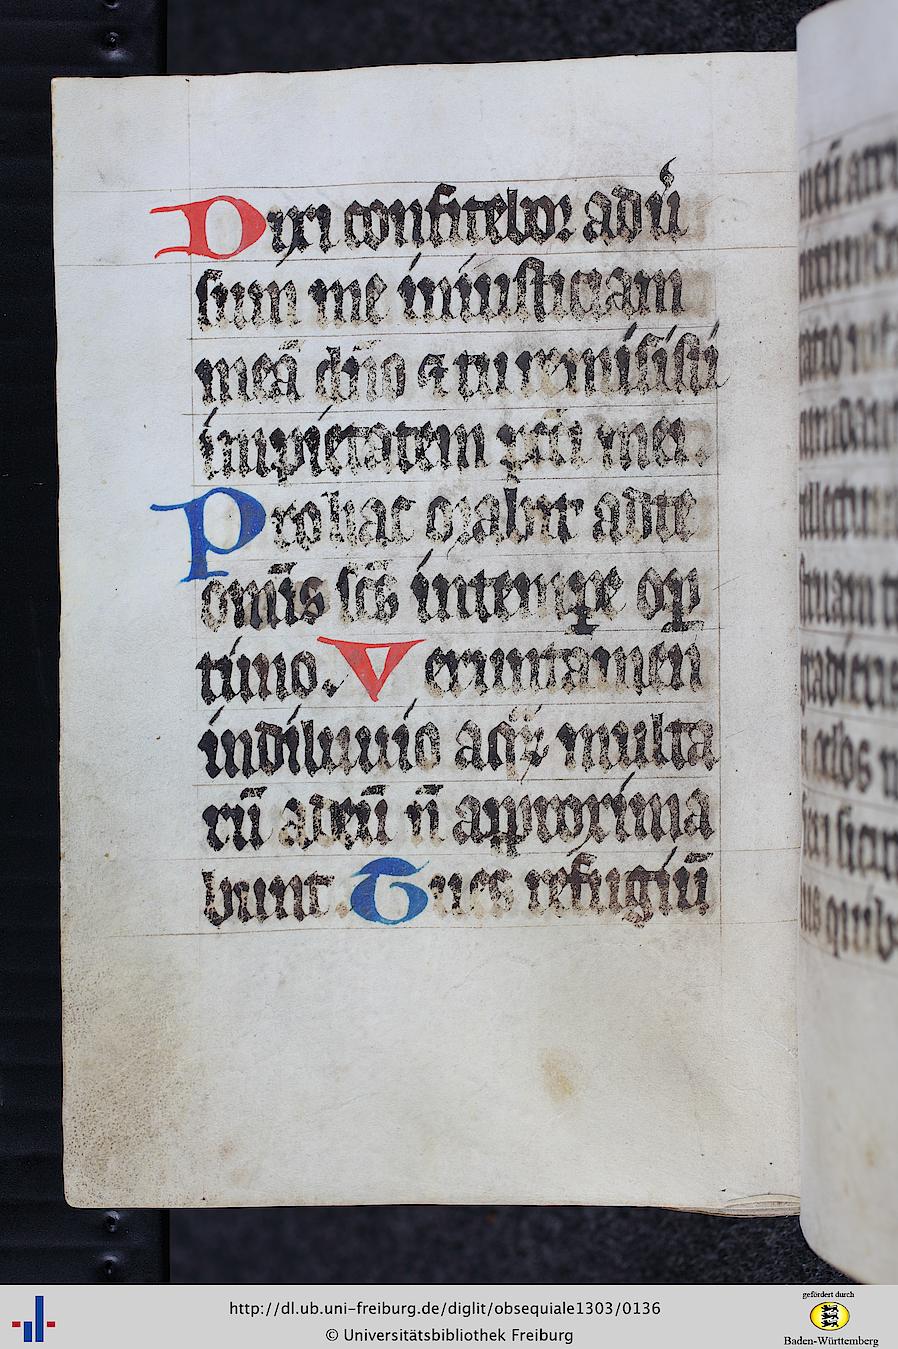 Dixi confitebor adũ
sum me iniusticiam
meā dño & tu remisisti
impietatem pcti mei.
Pro hac orabit ad te
omĩs scs in tempe opp
tuno. Verumtamen
in diluuio aqr̃ multa
rũ ad eũ ñ approxima
bunt. Tu es refugiũ
http://dl.ub.uni-freiburg.de/diglit/obsequiale1303/0136
© Universitätsbibliothek Freiburg
gefördert durch
Baden-Württemberg